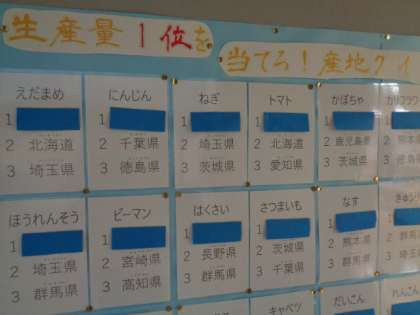 生産量1位を
当てろ!産地クイ
えだまめ
1
2 北海道
3 埼玉県
にんじん
1
2 千葉県
3 徳島県
ねぎ
1
2 埼玉県
3 茨城県
トマト
1
2 北海道
3 愛知県
かぼちゃ
1
2 鹿児島県
3 茨城県
1
2 熊本
3
ほうれんそう
1
2 埼玉県
3 群馬県
ピーマン
1
2 宮崎県
3 高知県
はくさい
1
2 長野県
3 群馬県
さつまいも
1
2 茨城県
3 千葉県
なす
1
2 熊本県
3 群馬県
きゅう
1
2 埼玉
3 群馬
キャベツ
だいこん
れんこん